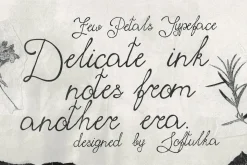 Few Petals Typeface
Delicate ink
notes from
another era.
designed by Softulka